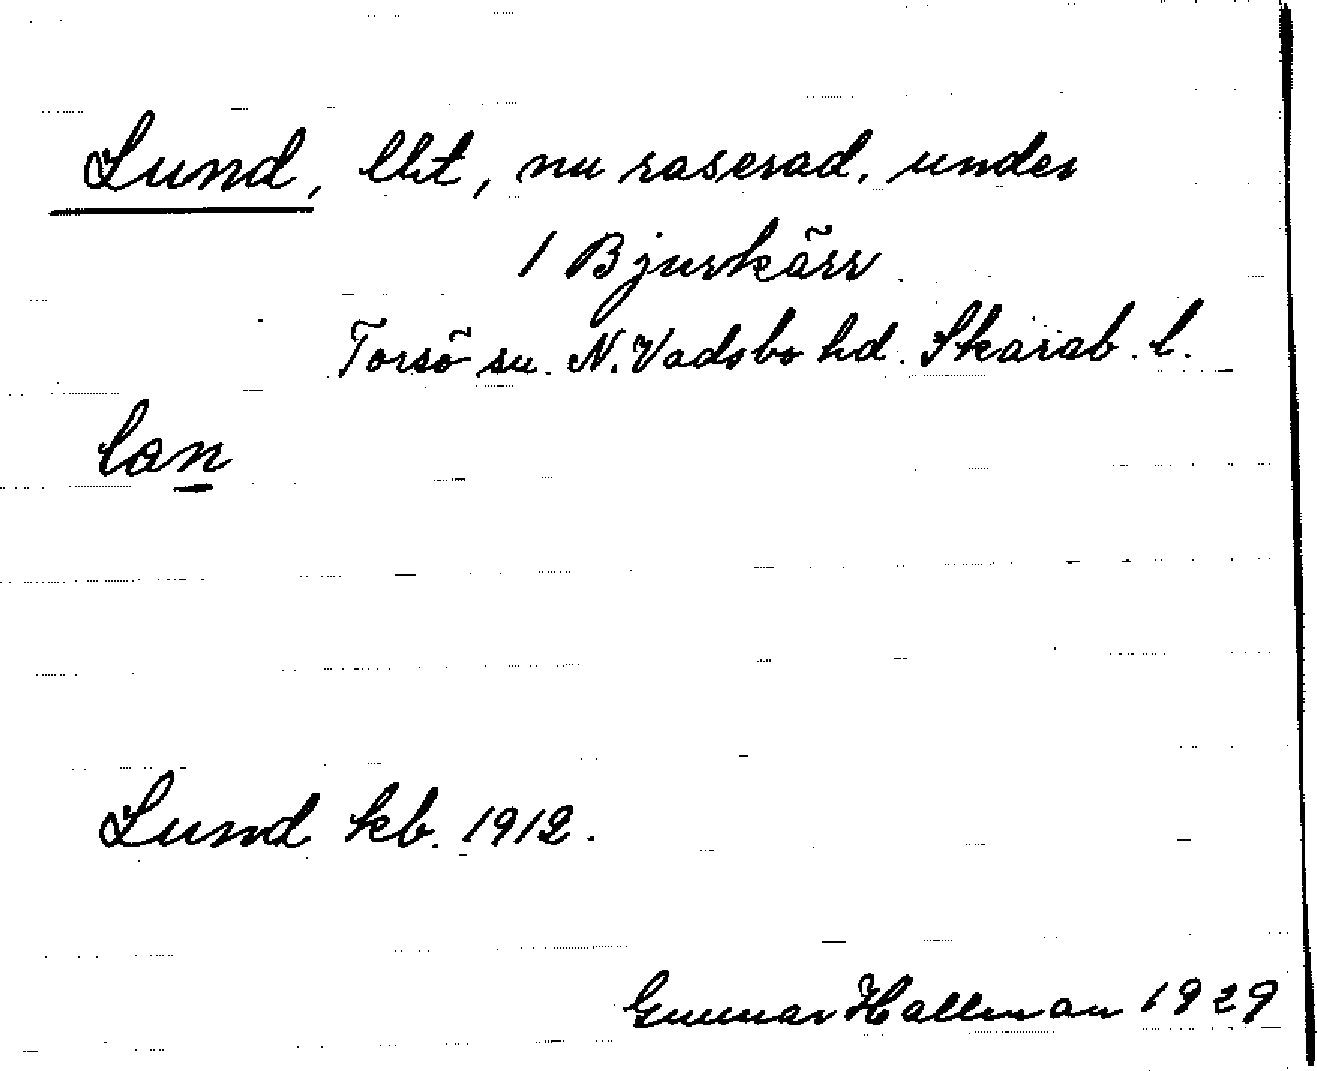 Lund, lht, nu raserad, under
1 Bjurkärr
Torsö sn. N. Vadsbo hd. Skarab. l.
lan
Lund kb. 1912.
Gunnar Hallman 1929